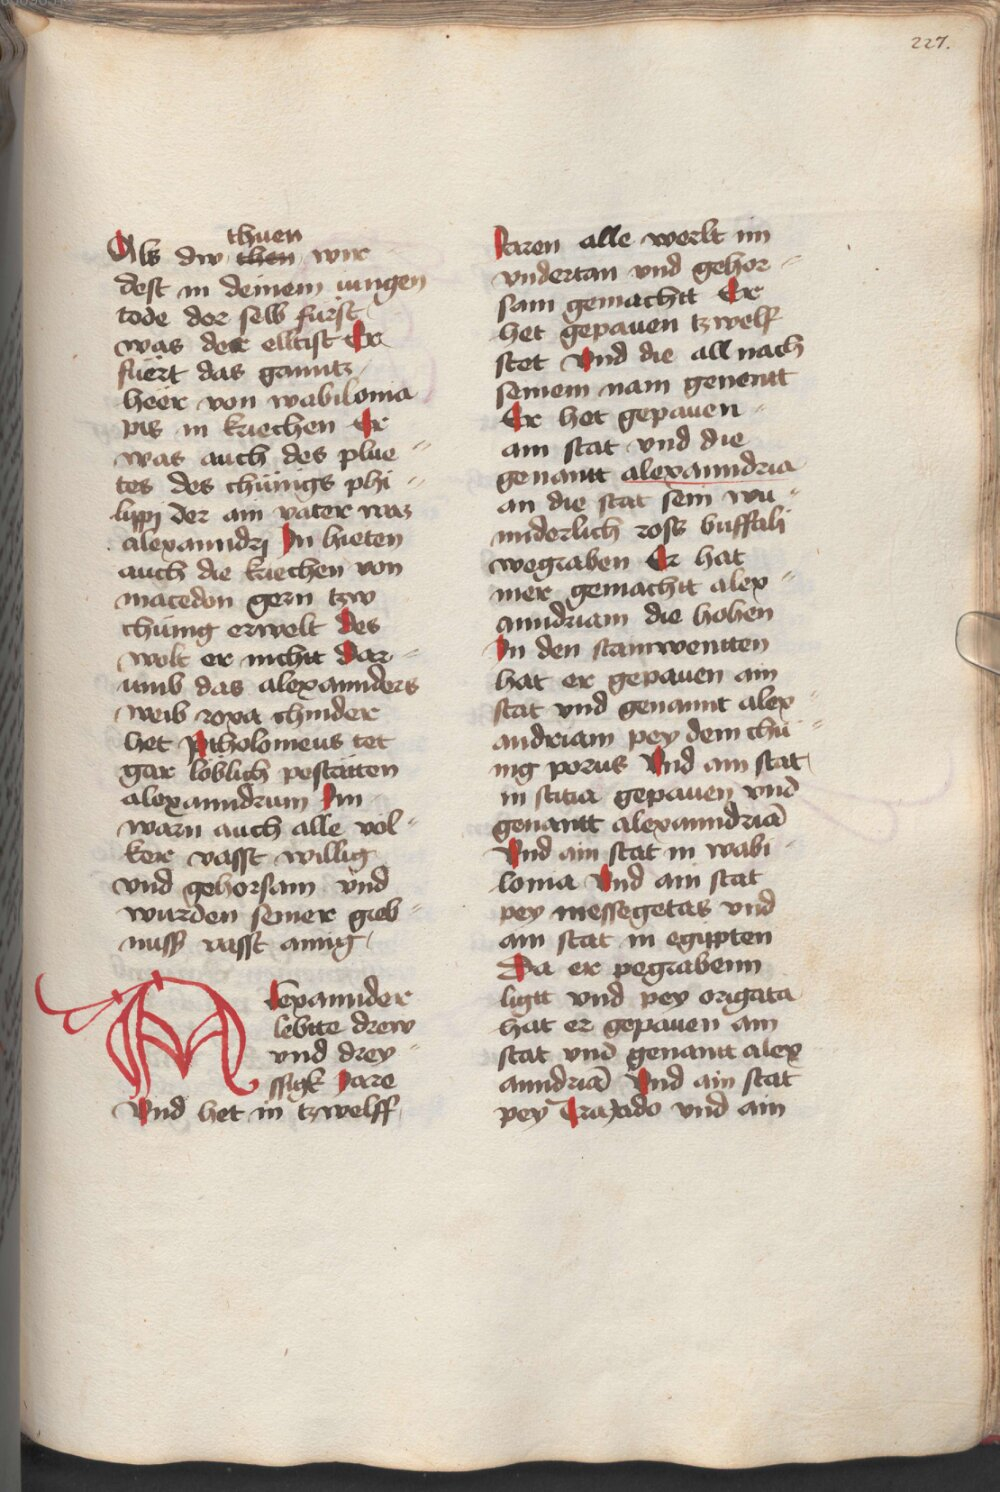 227.
thuen
Als dw then wir
dest in deinem iungen
tode der selb fürst
was der elltist Er
fuert das ganntz
heer von wabilonia
pis in kriechen Er
was auch des plue-
tes des chünigs phi-
lippi der am vater was
alexanndrj In hieten
auch die kriechen von
macedon gern tzw
chünig erwelt Des
wolt er nichtt Dar-
umb das alexannders
weib roxa chinder
het Ptholomeus tet
gar loblich pestäten
alexanndrum Im
warn auch alle vol-
ker vasst willig
vnd gehorsam vnd
wurden seiner greb-
nuss vasst ainig
Alexannder
lebtte drew
vnd drey-
ssigk Jare
Vnd het in tzwelff
Jaren alle werlt im
vndertan vnd gehor-
sam gemachtt Er
het gepauen tzwelf
stet Vnd die all nach
seinem nam genentt
Er het gepauen
ain stat vnd die
genantt alexanndria
an die stat sein wu-
nderlich ross buffali
wegraben Er hat
mer gemachtt alex-
anndriam die hohen
In den stainwentten
hat er gepauen ain
stat vnd genannt alex
andriam pey dem chü-
nig porus Vnd ain stat
in scitia gepauen vnd
genantt alexanndriā
Vnd ain stat in wabi-
lonia Vnd ain stat
pey messegetas vnd
ain stat in egippten
Da er pegrabenn
ligtt vnd pey origata
hat er gepauen ain
stat vnd genantt alex
anndriā Vnd ain stat
pey Traxado vnd ain